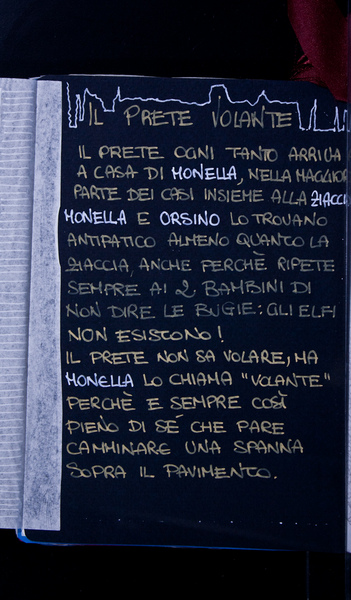 IL PRETE VOLANTE
IL PRETE OGNI TANTO ARRIVA
A CASA DI MONELLA, NELLA MAGGIOR
PARTE DEI CASI INSIEME ALLA ZIACCIA
MONELLA E ORSINO LO TROVANO
ANTIPATICO ALMENO QUANTO LA
ZIACCIA, ANCHE PERCHÈ RIPETE
SEMPRE AI 2 BAMBINI DI
NON DIRE LE BUGIE: GLI ELFI
NON ESISTONO!
IL PRETE NON SA VOLARE, MA
MONELLA LO CHIAMA "VOLANTE"
PERCHÈ E SEMPRE COSÌ
PIENO DI SÉ CHE PARE
CAMMINARE UNA SPANNA
SOPRA IL PAVIMENTO.